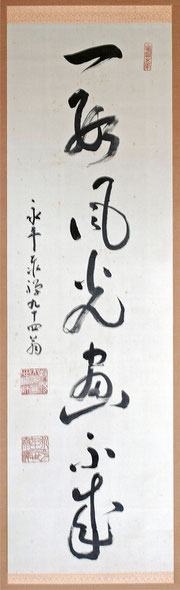 一段風光画不成
永平泰禅九十四翁